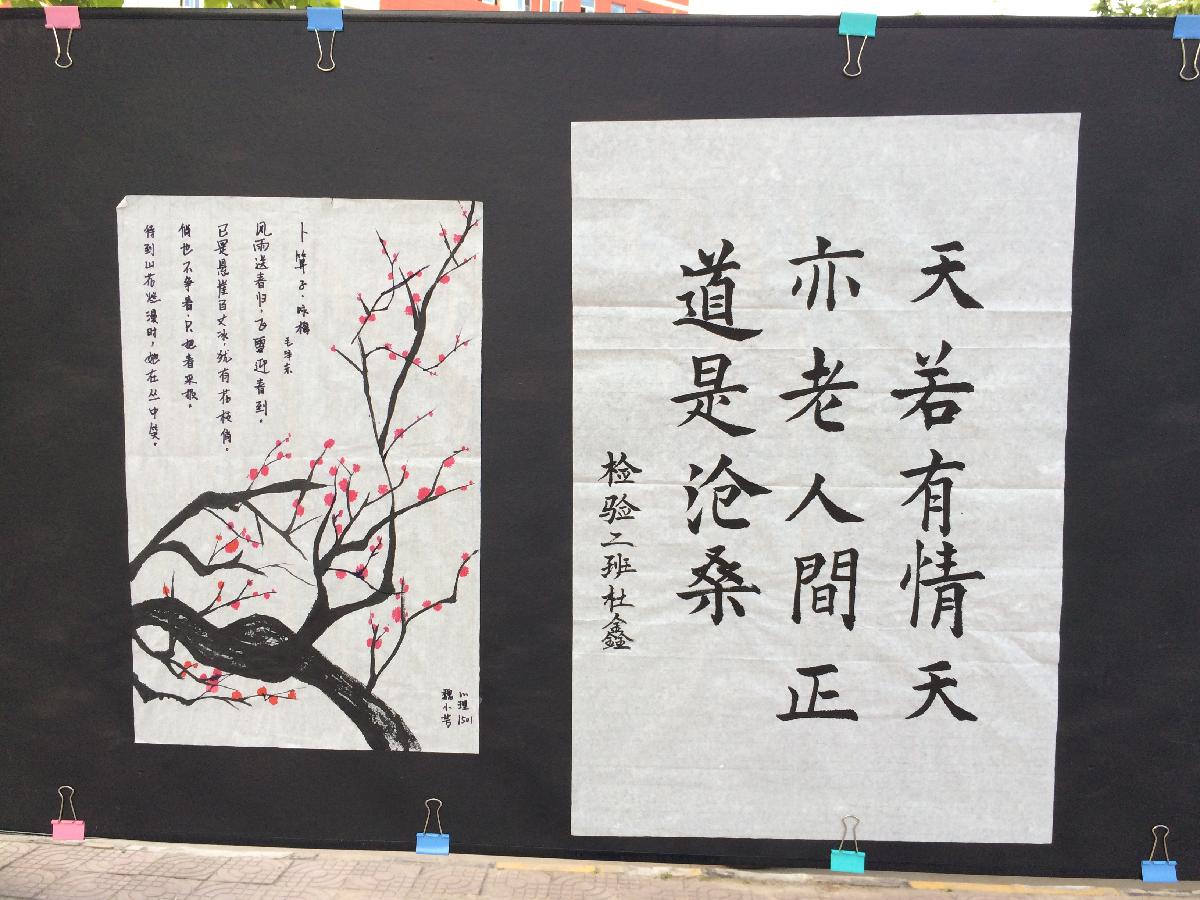 卜算子·咏梅
毛泽东
风雨送春归，飞雪迎春到。
已是悬崖百丈冰，犹有花枝俏。
俏也不争春，只把春来报。
待到山花烂漫时，她在丛中笑。
心理1501
魏小芳
天若有情天
亦老人間正
道是沧桑
检验二班杜鑫